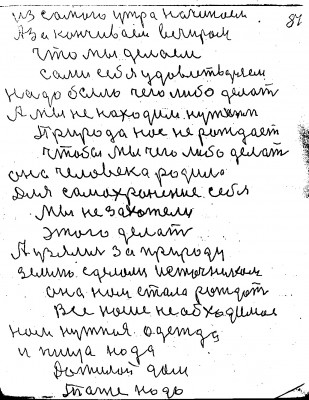 87
из самого утра начинаем
А заканчиваем вечиром
Что мы делаем
сами себя удовлетворяем
надо было чего либо делат
А мы не находим нужным
Природа нас не рождает
Чтобы мы чего либо делат
она человека родила
Для самохранение себя
Мы не захотели
этого делат
А узялис за природу
землю сделали источником
она нам стала рождат
Все наше необходимое
нам нужная одежда
и пища нада
Да жилой дом
Тоже надо